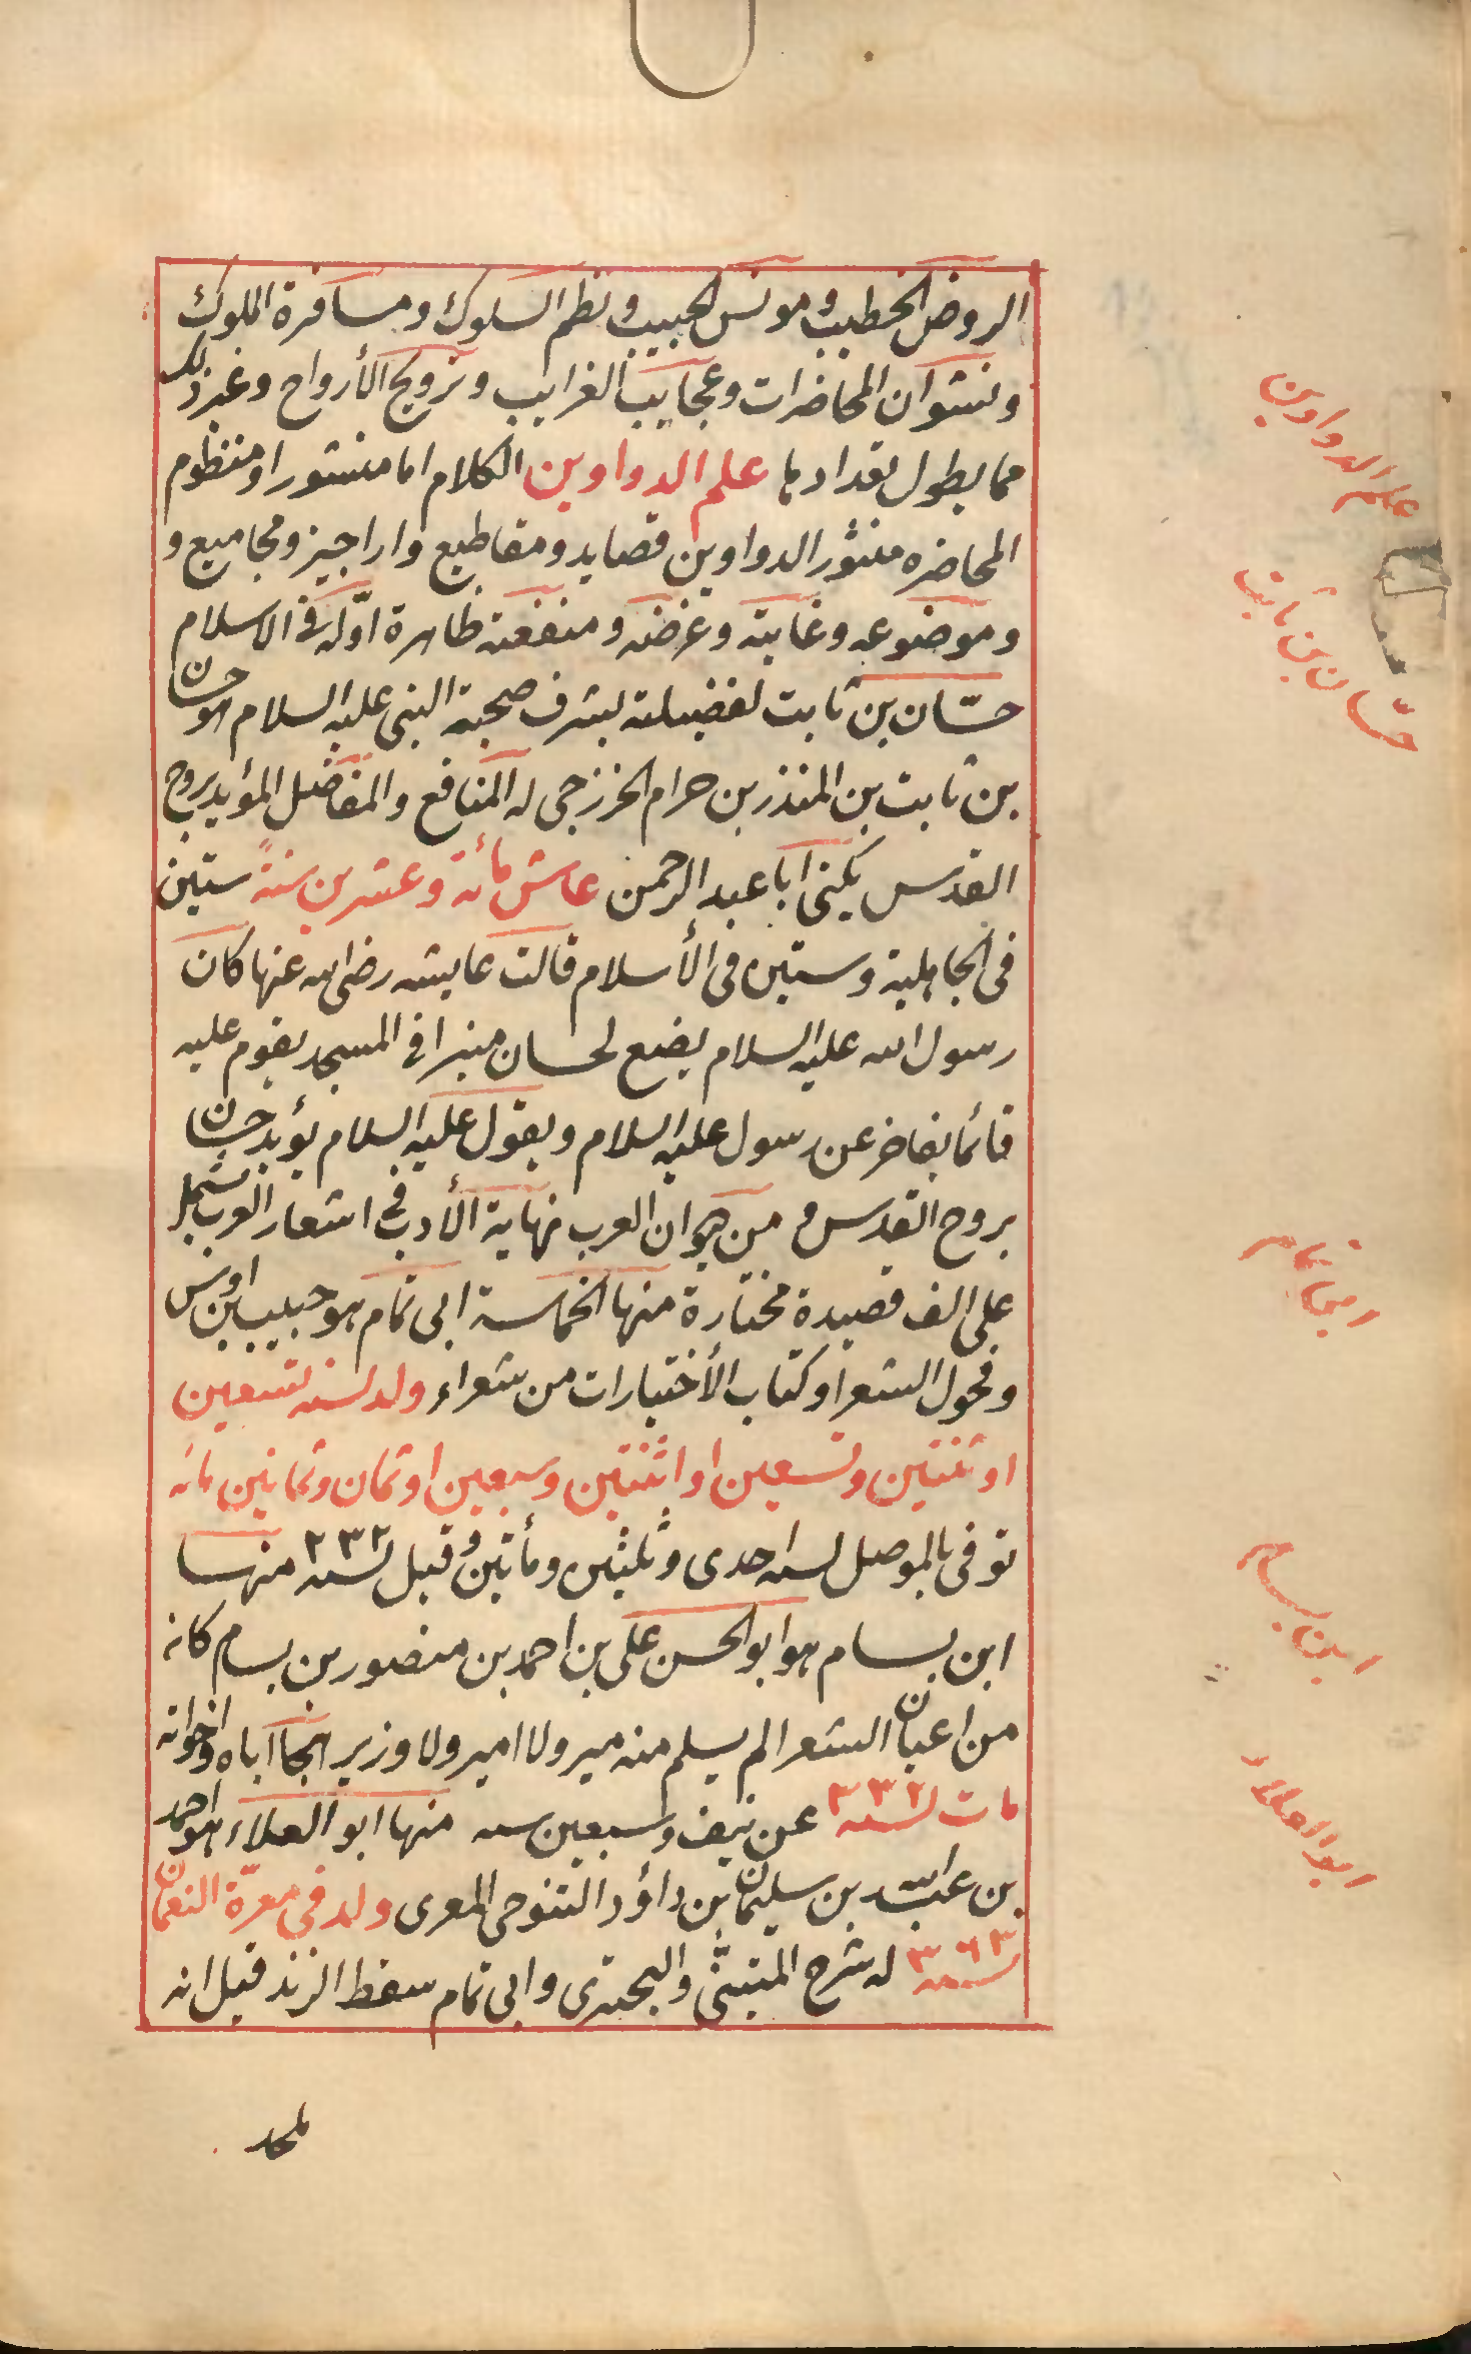 الروض الخطيب ومونس الحبيب ونظم السلوك ومسافرة الملوك
ونشوان المحاضرات وعجايب الغرايب وتزويج الأرواح وغير ذلك
مما يطول تعدادها علم الدواوين الكلام اما منثور او منظوم
المحاضره منثور الدواوين قصايد ومقاطيع واراجيز ومجاميع و
وموضوعه وغايته وغرضه ومنفعته ظاهرة اوّله فى الاسلام
حسّان بن ثابت لفضيلته بشرف صحبة النبى عليه السلام هو حسان
بن ثابت بن المنذر بن حرام الخزرجى له المنافع والمفاضل المؤيد بروح
القدس يكنى ابا عبد الرحمن عاش مائة وعشرين سنةً ستين
فى الجاهلية وستين فى الأسلام قالت عايشه رضى الله عنها كان
رسول الله عليه السلام يضع لحسان منبرا فى المسجد يقوم عليه
قائما يفاخر عن رسول عليه السلام ويقول عليه السلام يؤيد حسان
بروح القدس من ديوان العرب نهاية الأدب فى اشعار العرب يشتمل
على الف قصيدة مختارة منها الحماسة ابى تمام هو حبيب ابن اوس
وفحول الشعرا وكتاب الأختيارات من شعراء ولد لسنه تسعين
او ثنتين وتسعين او اثنتين وسبعين او ثمان وثمانين مائه
توفى بالموصل لسنه احدى وثلثين ومأتين وقيل لسنه ٢٣٢ منها
ابن بسام هو ابو الحسن على بن احمد بن منصور بن بسام كان
من اعيان الشعرا لم يسلم منه مير ولا امير ولا وزير هجا اباه واخوانه
مات لسنه ٣٣٢ عن نيف وسبعين سنه منها ابو العلاء هو احمد
بن عبد الله بن سليمان بن داؤد التنوخى المعرى ولد فى معرّة النعمان
لسنه ٣٦٣ له شرح المتنبّى والبحترى وابى تمام سقط الزند قيل انه
ملحد
علم الدواوين
حسّان بن ثابت
ابى تمام
ابن بسام
ابو العلاء